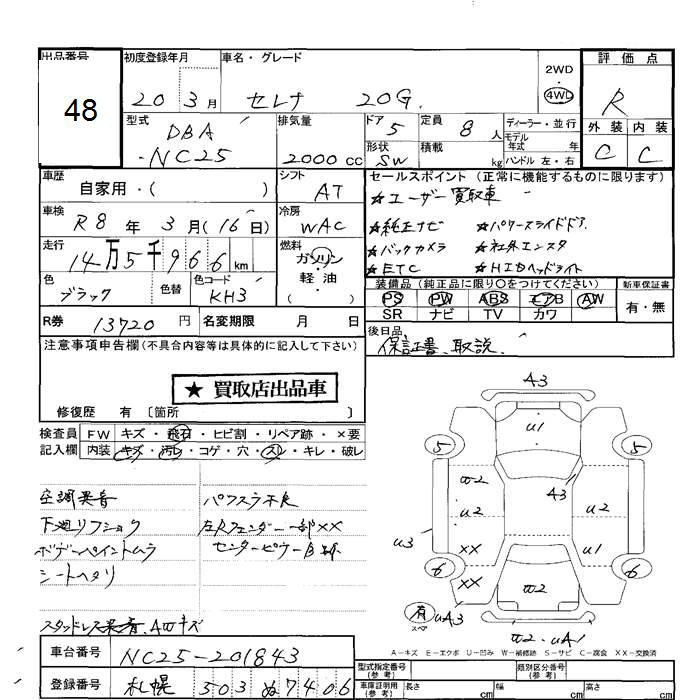 出品番号 初度登録年月 車名・グレード 2WD 評価点
48 20 3月 セレナ 20G. 4WD R
型式 排気量 ドア 定員 ディーラー・並行 外装 内装
DBA 5 8人 モデル年式 年
-NC25 2000cc 形状 SW 積載 kg ハンドル 左・右 C C
車歴 シフト セールスポイント (正常に機能するものに限ります)
自家用・( ) AT ★ユーザー買取車
車検 冷房 ★純正ナビ ★パワースライドドア
R8年3月(16日) WAC ★バックカメラ ★社外エンスタ
走行 燃料 ★ETC ★HIDヘッドライト
14万5千966km ガソリン
色 色替 色コード 軽油 装備品 (純正品に限り○をつけてください) 新車保証書
ブラック KH3 ( ) PS PW ABS エアB AW 有・無
SR ナビ TV カワ
R券 13720円 名変期限 月 日 後日品
保証書、取説
注意事項申告欄(不具合内容等は具体的に記入して下さい)
★ 買取店出品車
修復歴 有 〔箇所 〕
検査員 FW キズ・飛石・ヒビ割・リペア跡・×要
記入欄 内装 キズ・汚レ・コゲ・穴・スレ・キレ・破レ
空調異音 パワスラ不良
下廻リフショク 左Rフェンダー一部××
ボデーペイントムラ センターピラーB
シートヘタリ
スタッドレス AWキズ
A3
U1
5 5
W2 A3
U2 U2
U3
×× U1
6 6
××
W2
有 スペア UA3
W2・UA1
A－キズ E－エクボ U－凹み W－補修跡 S－サビ C－腐食 ××－交換済
車台番号 NC25-201843 型式指定番号(参考) 類別区分番号(参考)
登録番号 札幌 503 ぬ 7406 車庫証明用(参考) 長さ cm 幅 cm 高さ cm